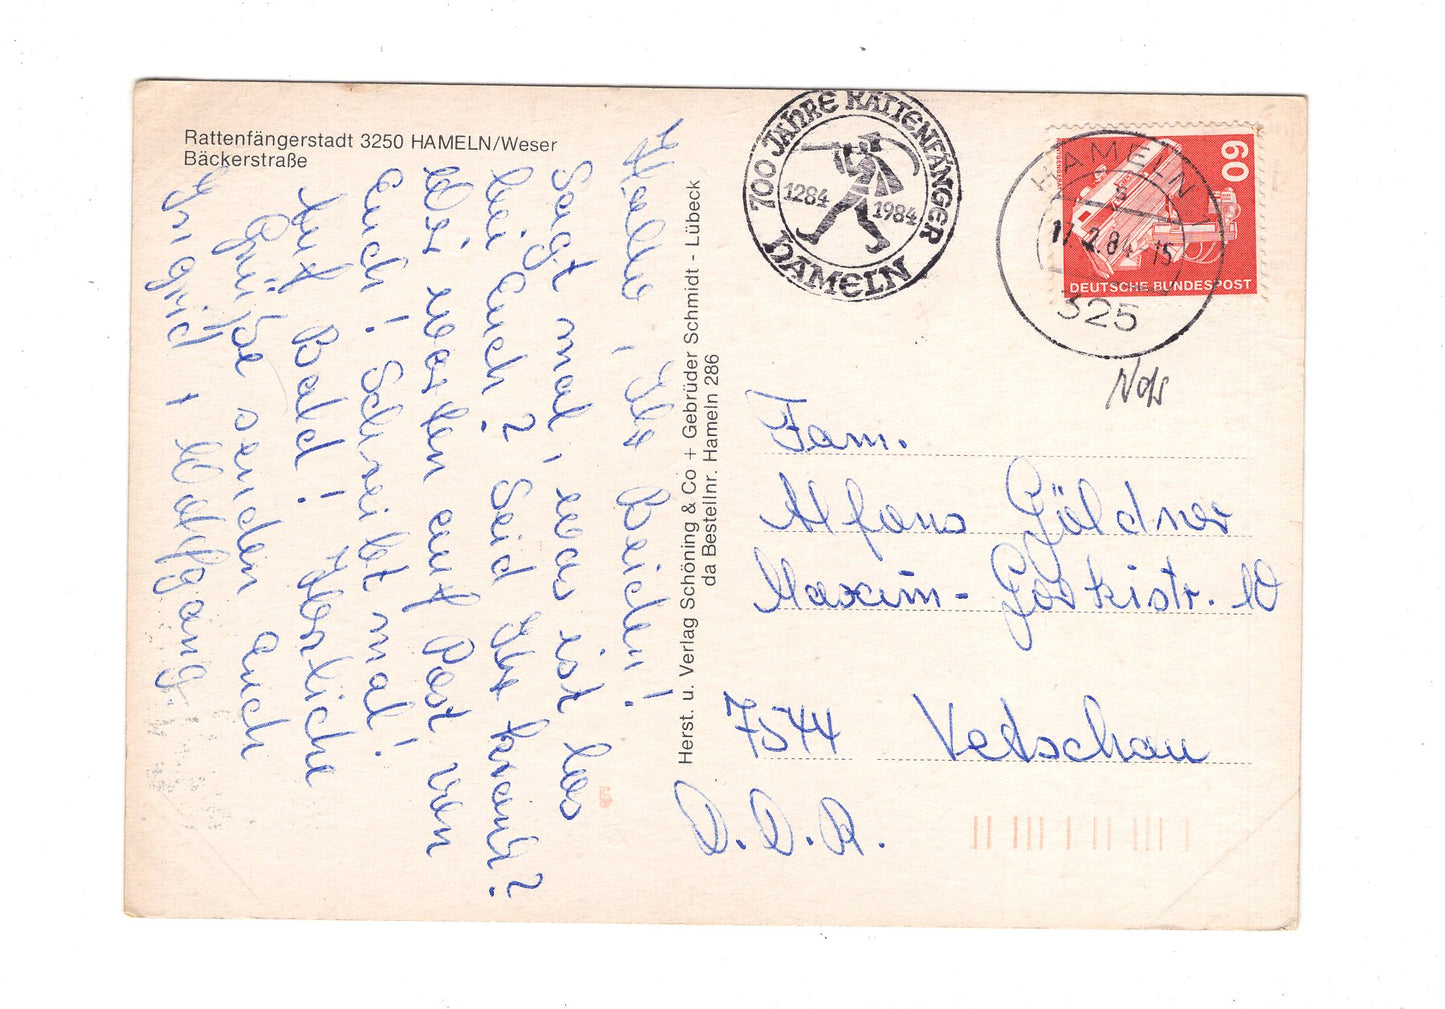 Rattenfängerstadt 3250 HAMELN/Weser
Bäckerstraße
Hallo, Ihr Beiden!
Sagt mal, was ist los
bei Euch? Seid Ihr krank?
Wir warten auf Post von
Euch! Schreibt mal!
Auf Bald! Herzliche
Grüße senden Euch
Ingrid + Wolfgang.
Herst. u. Verlag Schöning & Co + Gebrüder Schmidt - Lübeck
da Bestellnr. Hameln 286
700 JAHRE RATTENFÄNGER
1284 1984
HAMELN
HAMELN 1
17.2.84-15
325
60
DEUTSCHE BUNDESPOST
Fam.
Alfons Göldner
Maxim-Gorkistr. 10
7544 Vetschau
D.D.R.